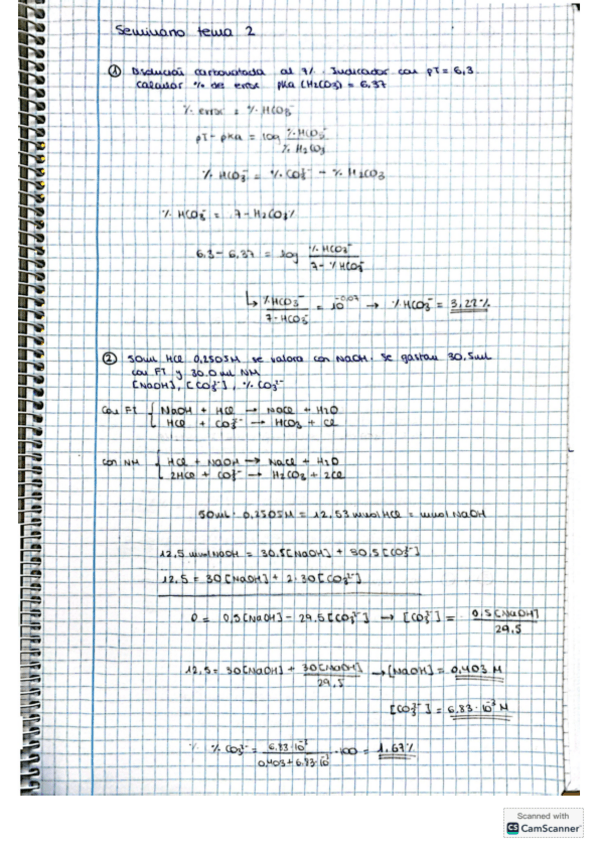 Seminario tema 2
① Disolución carbonatada al 7%. Indicador con pT = 6,3.
calcular % de error pKa (H₂CO₃) = 6,37
% error = % HCO₃⁻
pT - pKa = log % HCO₃⁻ / % H₂CO₃
% HCO₃⁻ = % CO₃²⁻ - % H₂CO₃
% HCO₃⁻ = 7 - H₂CO₃%
6,3 - 6,37 = log % HCO₃⁻ / 7 - % HCO₃⁻
↳ % HCO₃⁻ / 7 - HCO₃⁻ = 10^-0,07 → % HCO₃⁻ = 3,22%
② 50 mL HCl 0,2505M se valora con NaOH. Se gastan 30,5 mL
con FT y 30.0 mL NM
[NaOH], [CO₃²⁻], % CO₃²⁻
Con FT { NaOH + HCl → NaCl + H₂O
HCl + CO₃²⁻ → HCO₃ + Cl
Con NM { HCl + NaOH → NaCl + H₂O
2HCl + CO₃²⁻ → H₂CO₃ + 2Cl
50mL · 0,2505M = 12,53 mmol HCl = mmol NaOH
12,5 mmol NaOH = 30,5[NaOH] + 30,5[CO₃²⁻]
12,5 = 30[NaOH] + 2·30[CO₃²⁻]
0 = 0,5[NaOH] - 29,5[CO₃²⁻] → [CO₃²⁻] = 0,5[NaOH] / 29,5
12,5 = 30[NaOH] + 30[NaOH] / 29,5 → [NaOH] = 0,403 M
[CO₃²⁻] = 6,83·10⁻³ M
% CO₃²⁻ = 6,83·10⁻³ / 0,403 + 6,83·10⁻³ · 100 = 1,67%
Scanned with
CS CamScanner